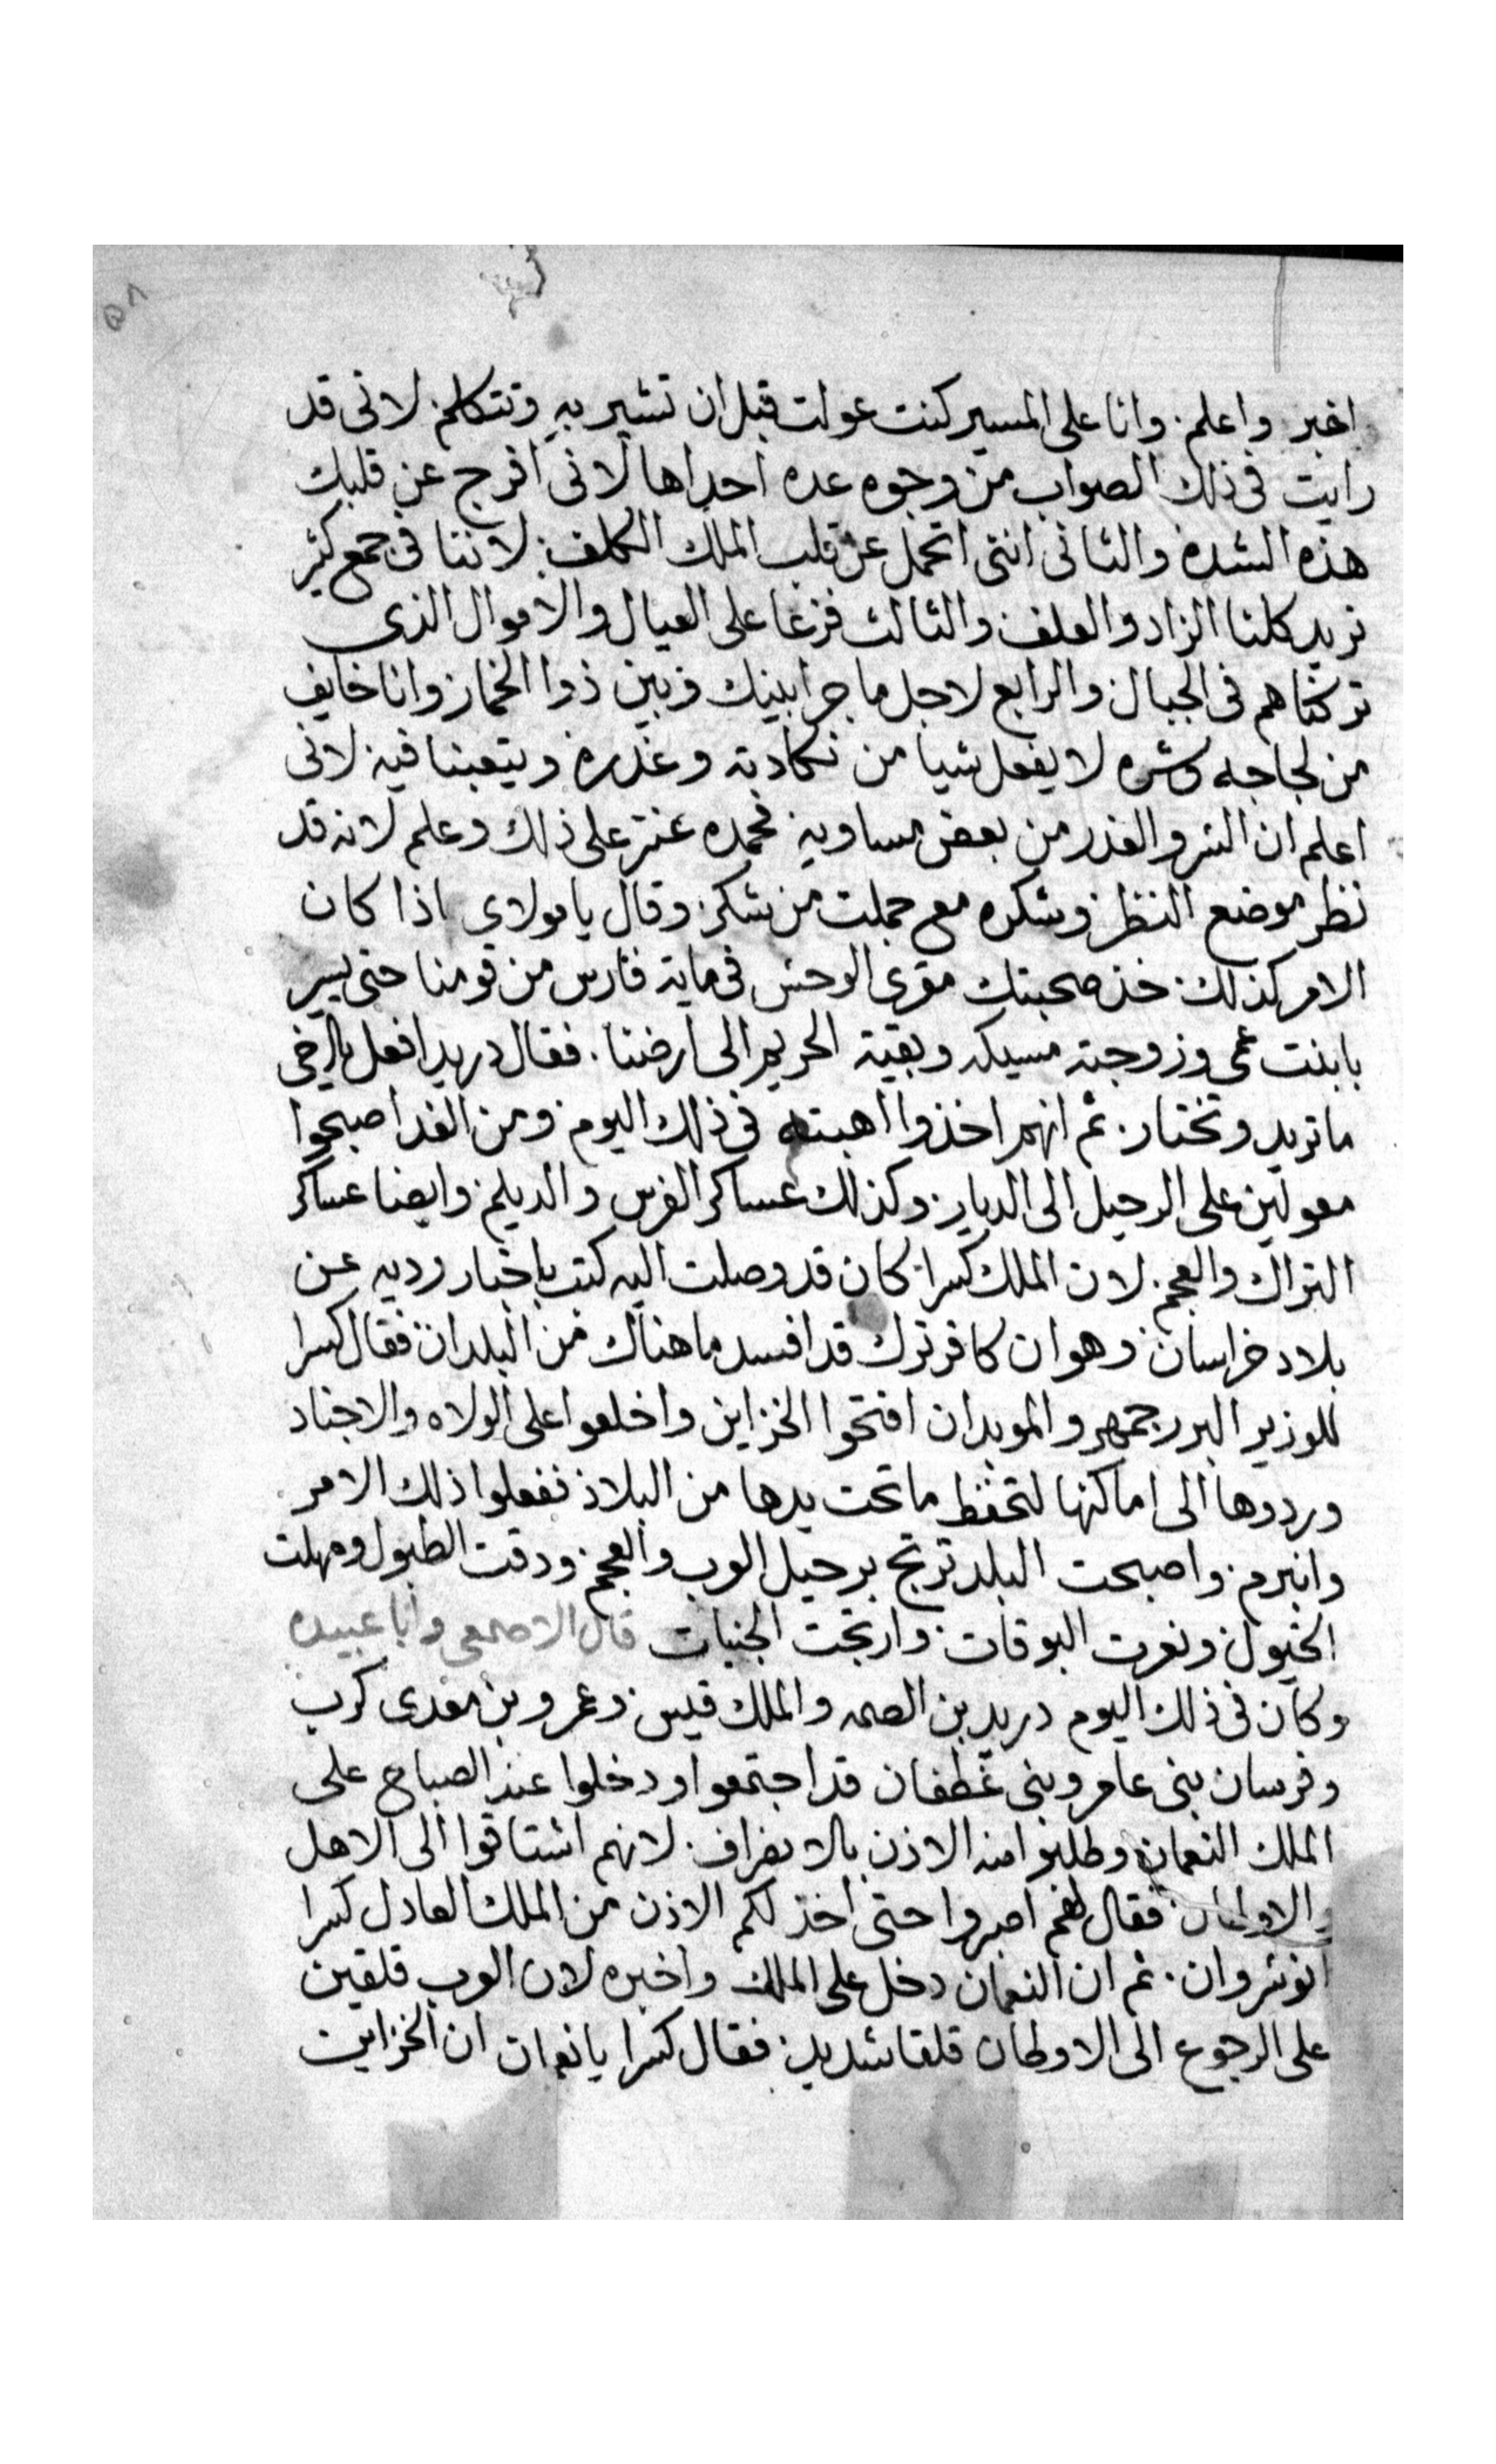 ٥٨
اخبر واعلم. وانا على المسير كنت عولت قبل ان تشير به وتتكلم. لانى قد
رايت فى ذلك الصواب من وجوه عده احداها لانى افرج عن قلبك
هذه الشده والثانى اننى اتحمل عن قلب الملك الكلف. لاننا فى جمع كثير
نريد كلنا الزاد والعلف والثالث فزعا على العيال والاموال الذى
تركناهم فى الجبال والرابع لاجل ما جرا بينك وبين ذوا الخمار وانا خايف
من لجاجه وشره لا يفعل شيا من نكادته وغدره ويتعبنا فيه لانى
اعلم ان الشر والغدر من بعض مساويه فحمده عنتر على ذلك وعلم لانه قد
نظر موضع النظر وشكره مع جملت من شكر وقال يا مولاى اذا كان
الامر كذلك. خذ صحبتك مقرى الوحش فى ماية فارس من قومنا حتى يسير
بابنت عمى وزوجته مسيكه وبقية الحريم الى ارضنا. فقال دريد افعل يا اخى
ما تريد وتختار. ثم انهم اخذوا اهبتهم فى ذلك اليوم ومن الغد اصبحوا
معولين على الرحيل الى الديار. وكذلك عساكر الفرس والديلم. وايضا عساكر
التراك والعجم. لان الملك كسرا كان قد وصلت اليه كتب باخبار رديه عن
بلاد خراسان وهو ان كافر ترك قد افسد ما هناك من البلدان فقال كسرا
للوزير البزرجمهر والموبدان افتحوا الخزاين واخلعوا على الولاه والاجناد
ورددوها الى اماكنها لتحفظ ما تحت يدها من البلاد ففعلوا ذلك الامر
وانبرم. واصبحت البلد ترتج برحيل العرب والعجم. ودقت الطبول وصهلت
الخيول ونعرت البوقات. وارتجت الجنبات قال الاصمعى وابا عبيده
وكان فى ذلك اليوم دريد بن الصمه والملك قيس وعمرو بن معدى كرب
وفرسان بنى عامر وبنى غطفان قد اجتمعوا ودخلوا عند الصباح على
الملك النعمان وطلبوا منه الاذن بالانصراف. لانهم اشتاقوا الى الاهل
والاوطان. فقال لهم اصبروا حتى اخذ لكم الاذن من الملك العادل كسرا
انوشروان. ثم ان النعمان دخل على الملك واخبره لان العرب قلقين
على الرجوع الى الاوطان قلقا شديد. فقال كسرا يا نعمان ان الخزاين